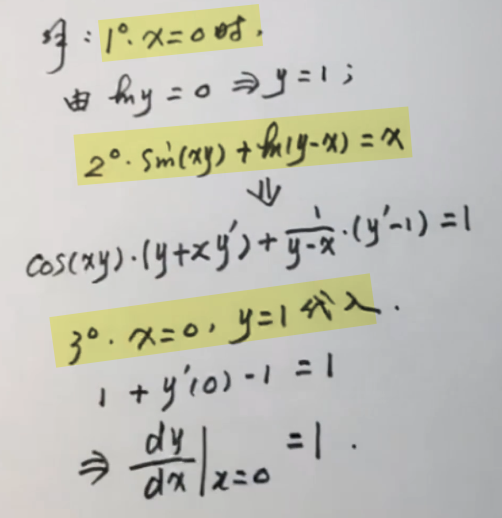 解:1°. x=0时,
由 ln y = 0 ⇒ y = 1;
2°. sin(xy) + ln(y-x) = x
⇓
cos(xy)·(y+xy') + 1/(y-x)·(y'-1) = 1
3°. x=0, y=1代入.
1 + y'(0) - 1 = 1
⇒ dy/dx|x=0 = 1.